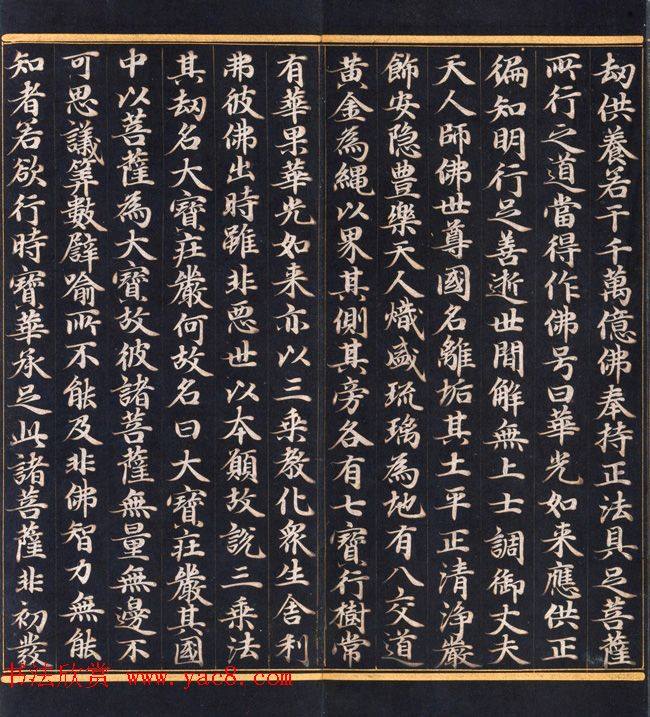 劫供養若干千萬億佛奉持正法具足菩薩
所行之道當得作佛号曰華光如来應供正
徧知明行足善逝世間解無上士調御丈夫
天人師佛世尊國名離垢其土平正清浄嚴
飾安隐豊樂天人熾盛琉璃為地有八交道
黃金為繩以界其側其旁各有七寶行樹常
有華果華光如来亦以三乗教化眾生舍利
弗彼佛出時雖非惡世以本願故說三乗法
其劫名大寶莊嚴何故名曰大寶莊嚴其國
中以菩薩為大寶故彼諸菩薩無量無邊不
可思議筭數譬喻所不能及非佛智力無能
知者若欲行時寶華承足此諸菩薩非初發
书法欣赏 www.yac8.com